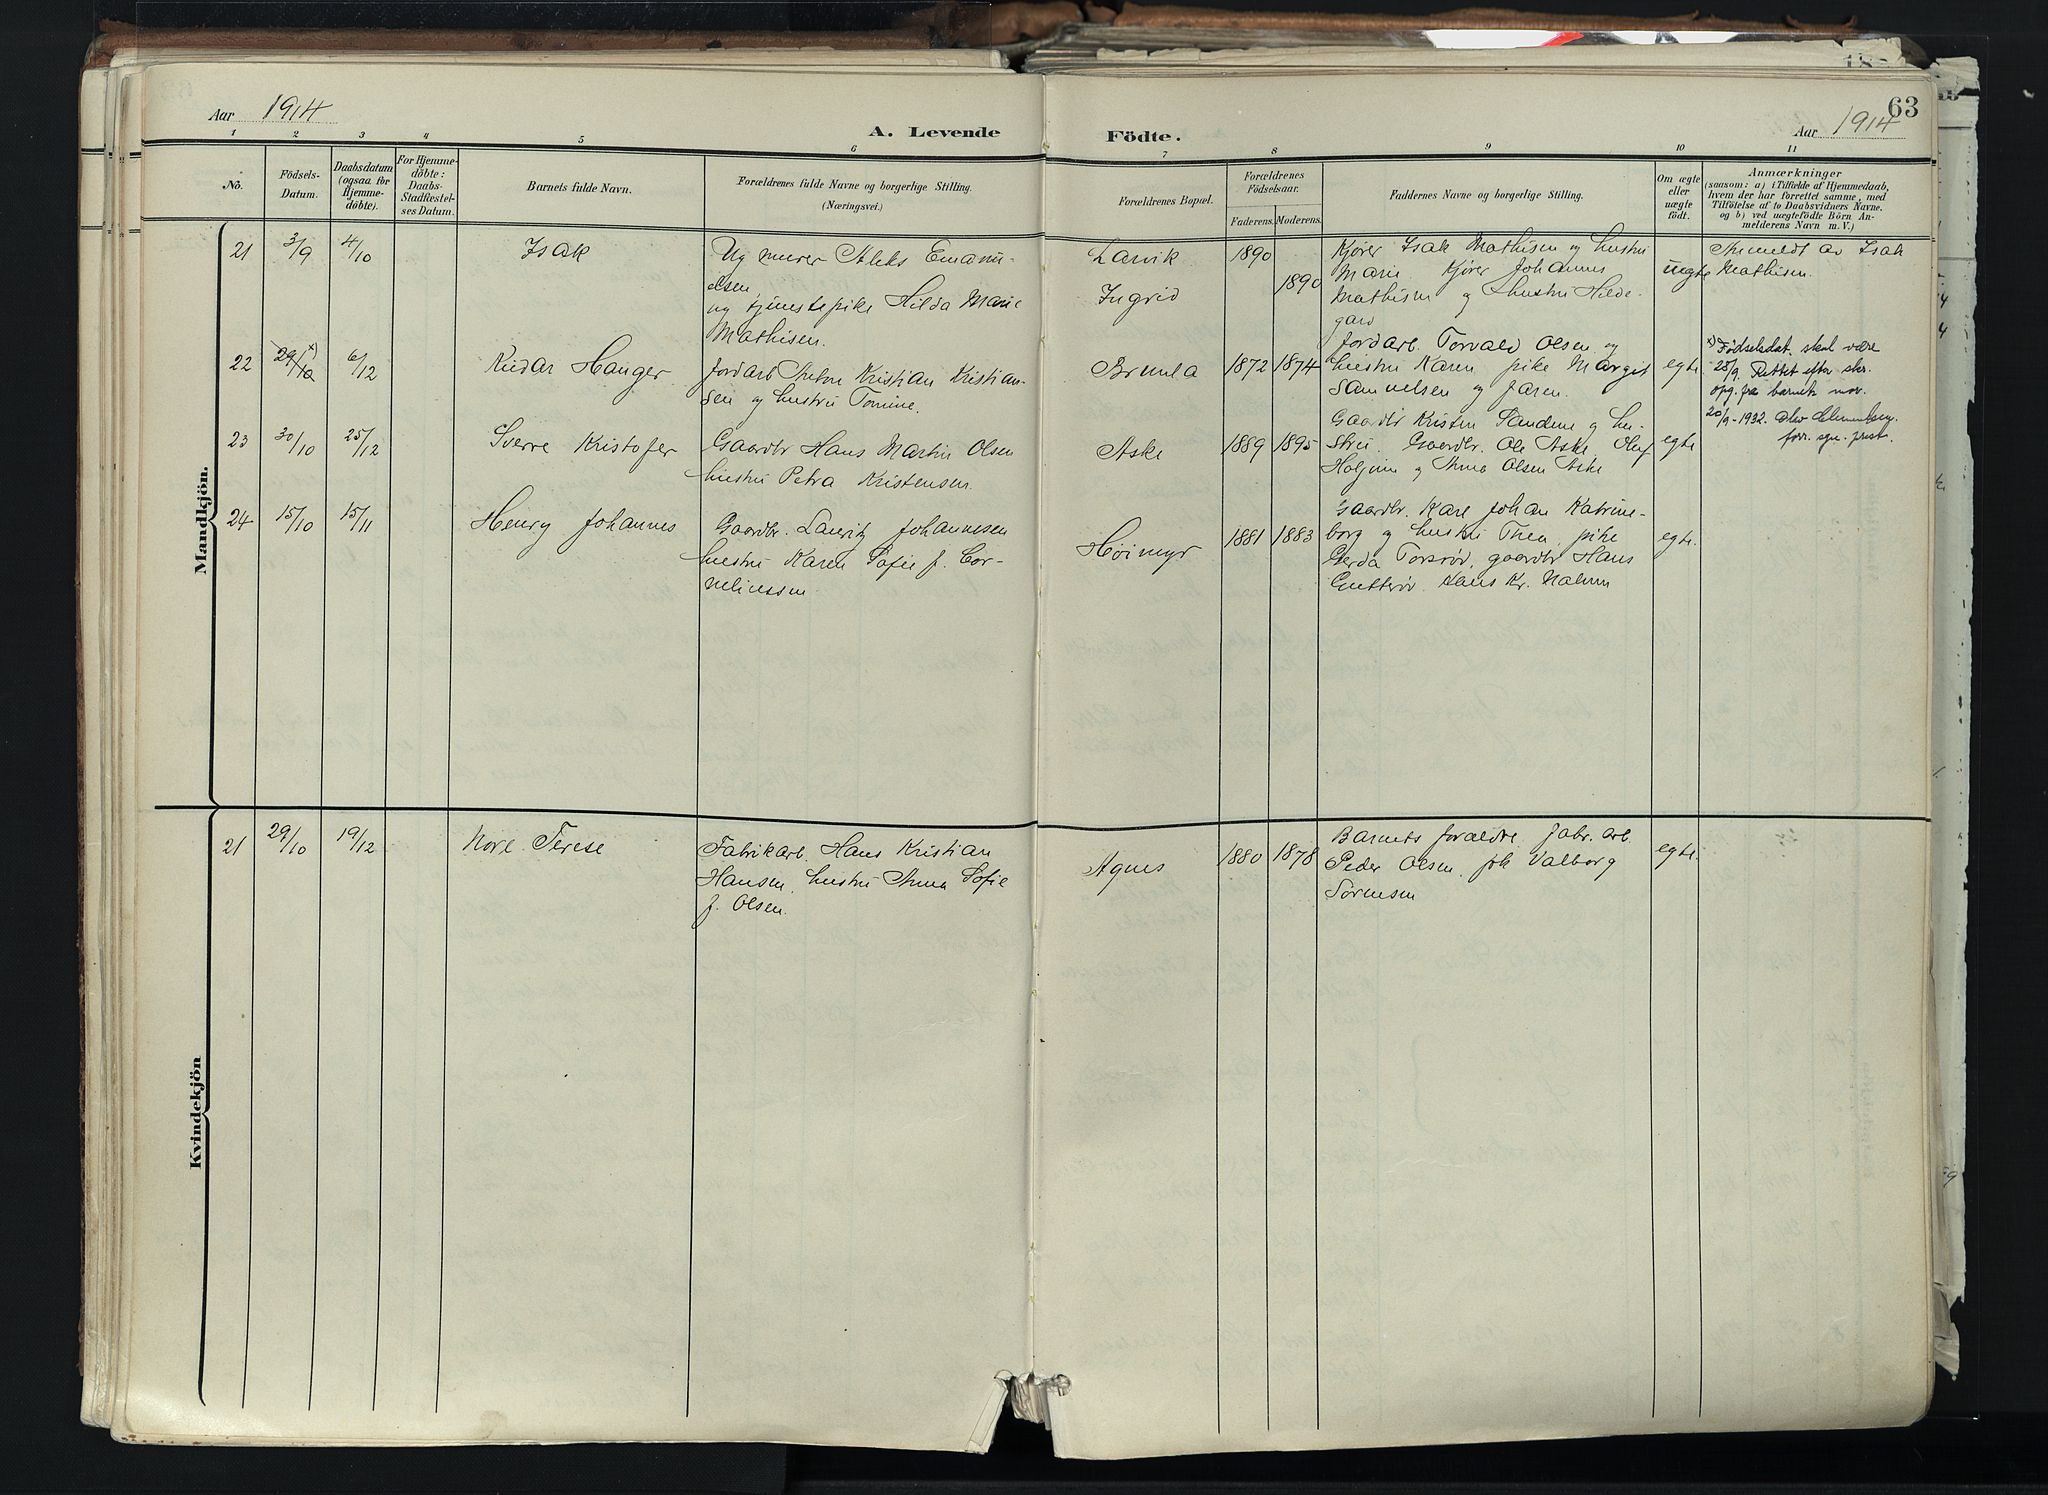 Aar 1914
A. Levende
Födte.
63
Aar 1914
1 2 3 4 5 6 7 8 9 10 11
No.
Födsels-
Datum.
Daabsdatum
(ogsaa for
Hjemme-
döbte).
For Hjemme-
döbte:
Daabs-
Stadfæstel-
ses Datum.
Barnets fulde Navn.
Forældrenes fulde Navne og borgerlige Stilling.
(Næringsvei.)
Forældrenes Bopæl.
Forældrenes
Födselsaar.
Faderens. Moderens.
Faddernes Navne og borgerlige Stilling.
Om ægte
eller
uægte
födt.
Anmærkninger
(saasom: a) i Tilfælde af Hjemmedaab,
hvem der har forrettet samme, med
Tilföielse af to Daabsvidners Navne,
og b) ved uægtefödte Börn An-
melderens Navn m. V.)
Mandkjön.
21 3/9 4/10 Isak
Ug murer Aleks Emanu-
elsen
ug tjenestepike Hilda Marie
Mathisen.
Larvik
Ingrid
1890
1890
Kjører Isak Mathisen og hustru
Marie Kjører Johannes
Mathisen og hustru Hilde-
gard
uegte
Anmeldt av Isak
Mathisen.
22 29/10 x) 6/12 Reidar Hauger
Jordarb Anton Kristian Kristian-
sen og hustru Tomine.
Brunla
1872 1874
Jordarb. Torvald Olsen og
hustru Karen pike Margit
Samuelsen og Jaren.
egte
x) Fødselsdat. skal være
25/9. Rettet efter skr.
opg. fra barnets mor.
20/9-1932.
23 30/10 25/12 Sverre Kristofer
Gaardbr Hans Martin Olsen
hustru Petra Kristensen.
Aske
1889 1895
Gaardbr Kristen Sandene og hu-
stru. Gaardbr. Ole Aske, Oluf
Holjem og Anna Olsen Aske
egte
24 15/10 15/11 Henry Johannes
Gaardbr. Lauritz Johannesen
hustru Karen Sofie f. Cor-
neliussen
Høimyr
1881 1883
Gaardbr. Karl Johan Katrine-
borg og hustru Thea, pike
Gerda Torsrød, gaardbr Hans
Hans Kr. Nalum
egte.
Kvindekjön
21 29/10 19/12 Nore Terese
Fabrikarb. Hans Kristian
Hansen, hustru Anna Sofie
f. Olsen.
Agnes
1880 1878
Barnets forældre, fabr. arb.
Peder Olsen, frk Valborg
Sørensen
egte.